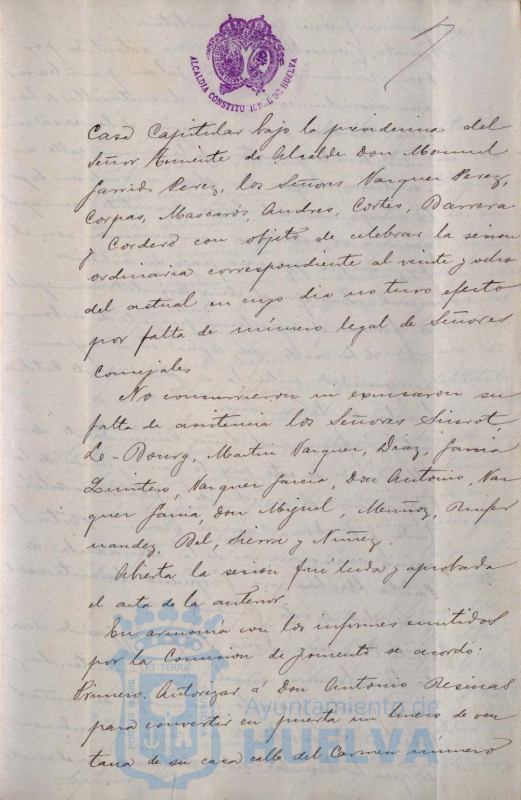 ALCALDIA CONSTITUCIONAL DE HUELVA
Casa Capitular bajo la presidencia del
Señor Teniente de Alcalde Don Manuel
Garrido Perez, los Señores Vazquez Perez,
Corpas, Mascarós, Andreo, Cortés, Barrera
y Cordero con objeto de celebrar la sesion
ordinaria correspondiente al veinte y ocho
del actual en cuyo dia no tuvo efecto
por falta de número legal de Señores
Concejales
No concurrieron ni escusaron su
falta de asistencia los Señores
Le-Bourg, Martin Vazquez, Diaz, Garcia
Quintero, Vazquez Garcia, Don Antonio, Vaz
quez Garcia, Don Miguel, Muñoz,
nandez, Bel, Sierra y Nuñez.
Abierta la sesion fué leida y aprobada
el acta de la anterior
En armonía con los informes emitidos
por la Comision de Fomento se acordó:
Primero. Autorizar á Don Antonio Resinas
para convertir en puerta un hueco de ven
tana de su casa calle del Carmen número
Ayuntamiento de
HUELVA